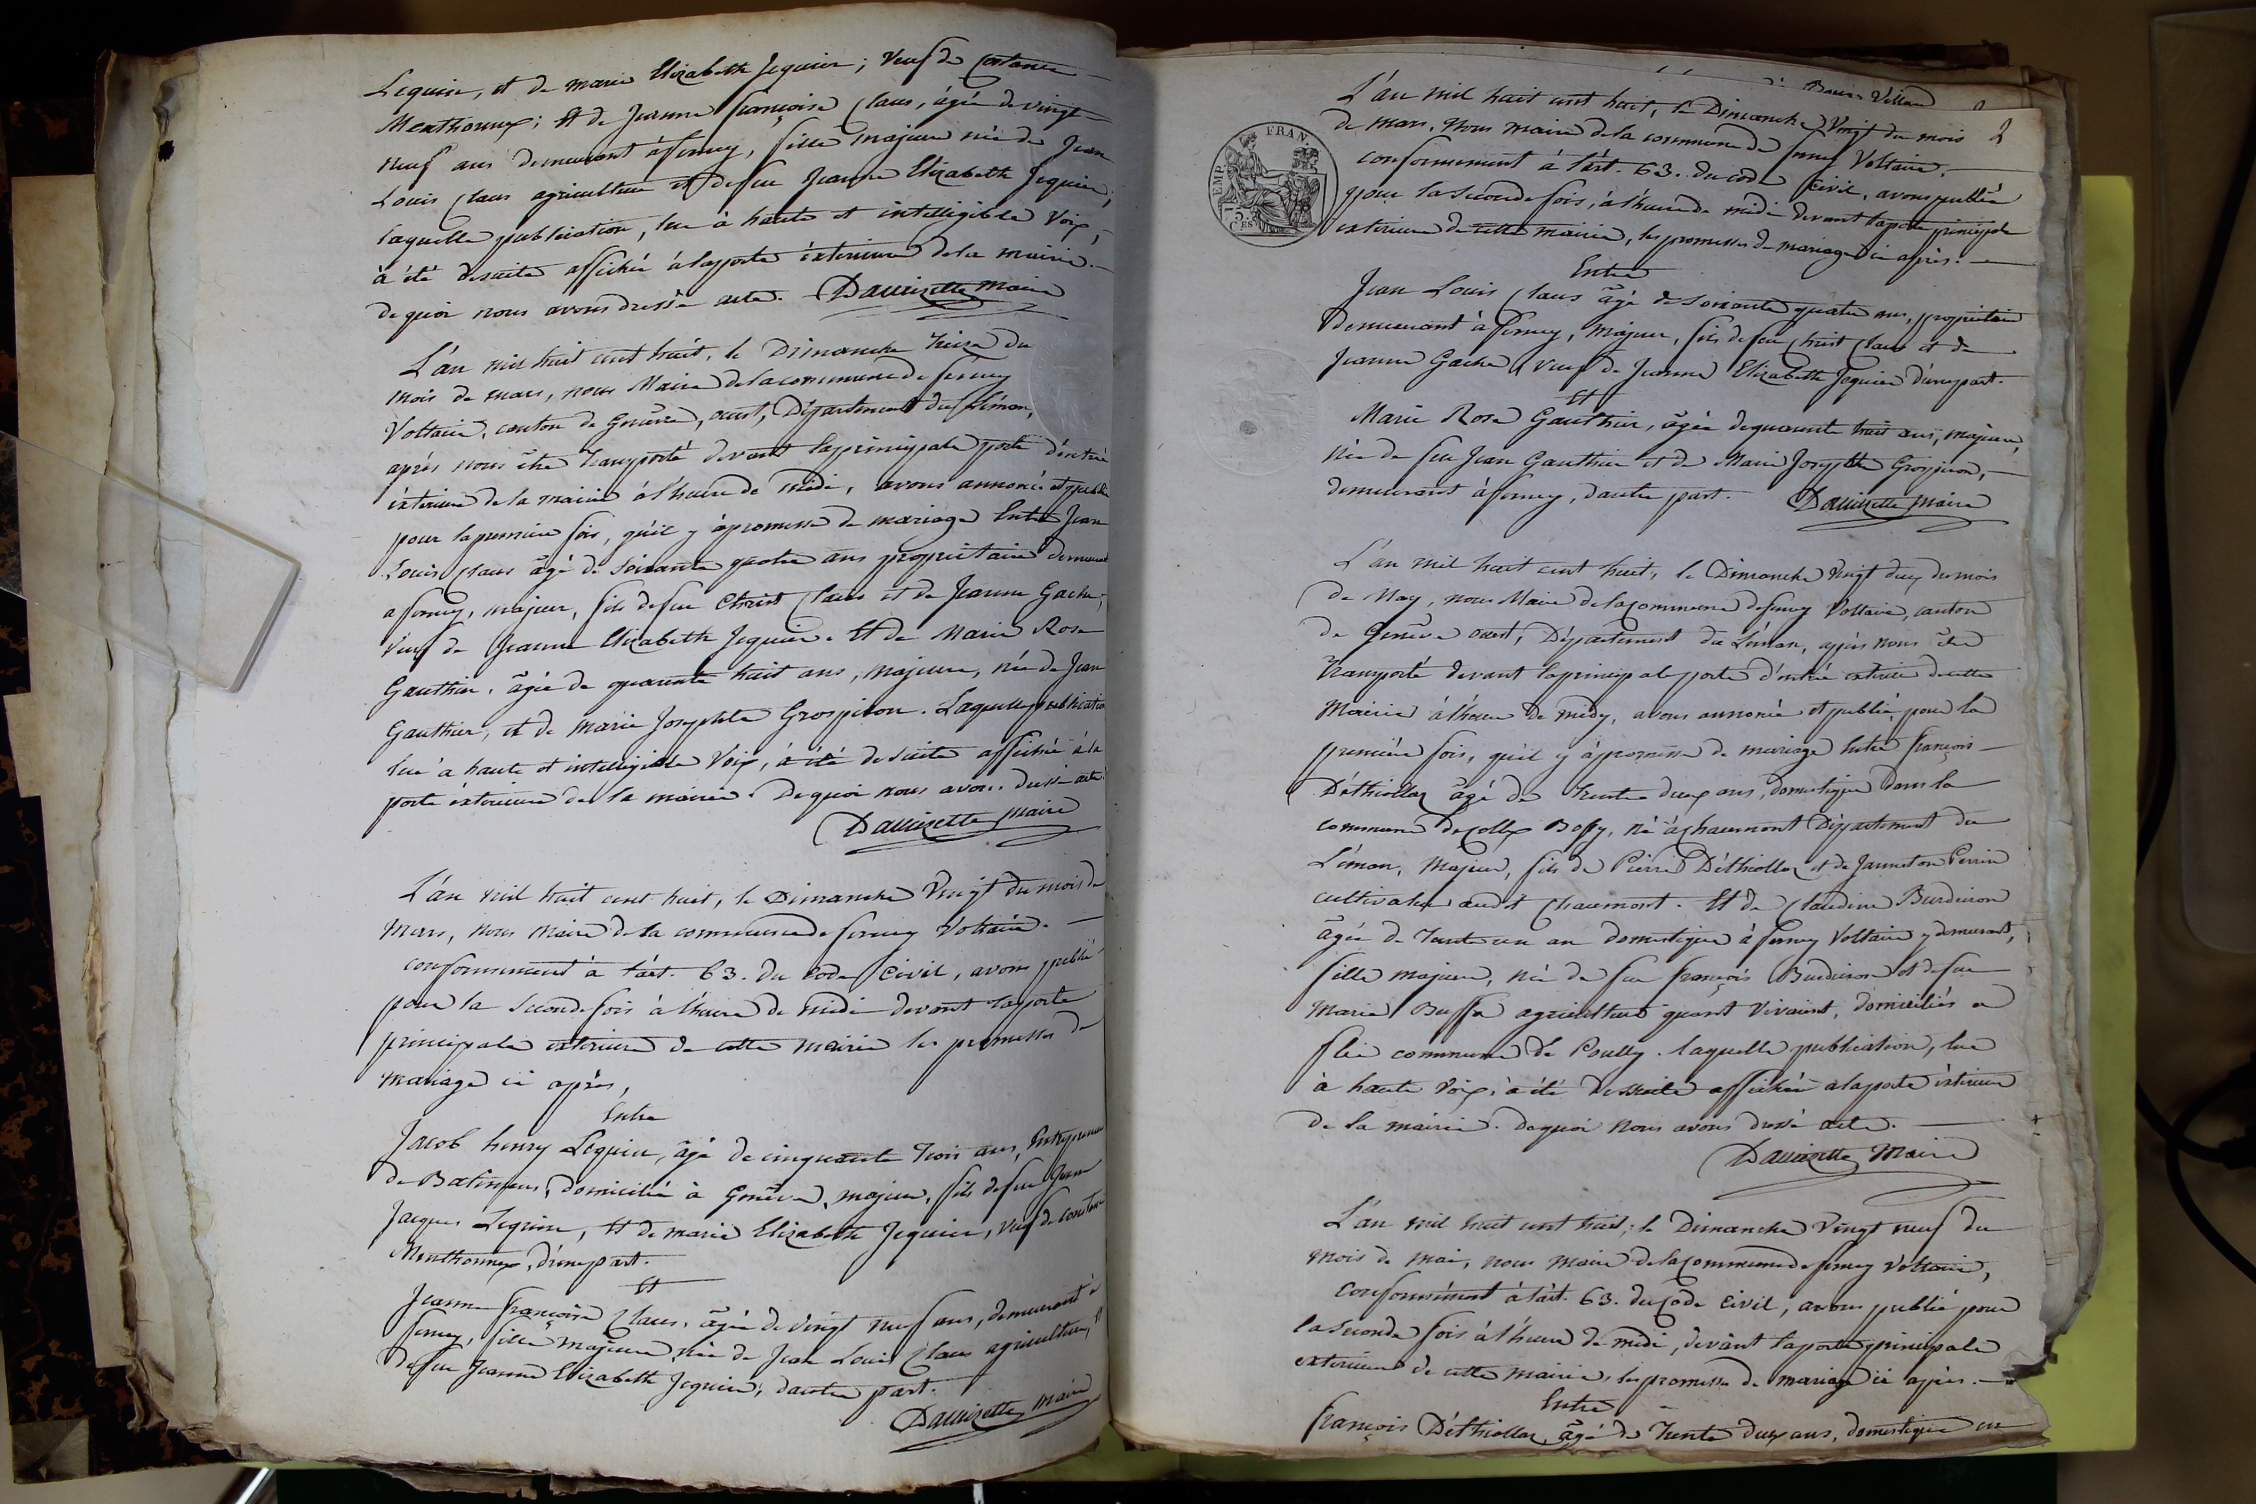 Lequin, et de marie Elizabeth Jequier; Veuf de Constance
Menthonnex; Et de Jeanne françoise Claus, âgée de vingt
neuf ans demeurant à ferney, fille majeure née de Jean
Louis Claus agriculteur et de feu Jeanne Elizabeth Jequier;
laquelle publication, lue à haute et intelligible Voix,
à été desuite affichée à la porte éxterieure de la mairie.
de quoi nous avons dressé acte. Dauvizette Maire
L'an mil huit cent huit, le Dimanche treize du
mois de mars, nous Maire de la commune de ferney
Voltaire, canton de Genève, ouest, Département du Léman,
après nous être transporté devant la principale porte d'entrée
éxterieure de la mairie à l'heure de midi, avons annoncé et publié
pour la premiere fois, qu'il y à promesse de mariage Entre Jean
Louis Claus âgé de Soixante quatre ans propriétaire demeurant
a ferney, majeur, fils de feu Christ Claus et de Jeanne Gache,
Veuf de Jeanne Elizabeth Jequier. Et de Marie Rose
Gauthier, âgée de quarante huit ans, majeure, née de Jean
Gauthier, et de marie Josephte Grospiron. Laquelle publication
lue a haute et intelligible Voix, à été de suite affichée à la
porte éxterieure de la mairie. De quoi nous avons dressé acte.
Dauvizette Maire
L'an mil huit cent huit, le Dimanche Vingt du mois de
Mars, nous Maire de la commune de ferney Voltaire.
conformement à l'art. 63. du Code Civil, avons publié
pour la Seconde fois à l'heure de midi devant la porte
principale exterieure de cette mairie les promesses de
mariage ci après,
Entre
Jacob henry Lequin, âgé de cinquante trois ans, Entrepreneur
de Batimens, domicilié à Genève, majeur, fils de feu Jean
Jacques Lequin, Et de marie Elizabeth Jequier, veuf de Constance
Menthonnex, d'une part.
Et
Jeanne françoise Claus, âgée de vingt neuf ans, demeurant à
ferney, fille majeure, née de Jean Louis Claus agriculteur, &
de feu Jeanne Elizabeth Jequier; d'autre part.
Dauvizette Maire
2
L'an mil huit cent huit, le Dimanche Vingt du mois
de mars, Nous maire de la commune de ferney Voltaire,
conformement à l'art. 63. du code Civil, avons publié
pour la seconde fois, à l'heure de midi devant la porte principale
exterieure de cette mairie, les promesses de mariage ci après.
EMP. FRAN.
75
CES
Entre
Jean Louis Claus âgé de Soixante quatre ans, propriétaire
demeurant à ferney, majeur, fils de feu Christ Claus et de
Jeanne Gache, veuf de Jeanne Elizabeth Jequier d'une part.
Et
Marie Rose Gauthier, âgée de quarante huit ans, majeure,
née de feu Jean Gauthier et de Marie Josephte Grospiron,
demeurant à ferney, d'autre part. Dauvizette Maire
L'an mil huit cent huit, le Dimanche Vingt deux du mois
de May, nous Maire de la Commune de ferney Voltaire, canton
de Genève ouest, Département du Léman, après nous être
transporté devant la principale porte d'entrée exterieure de cette
Mairie à l'heure de midy, avons annoncé et publié, pour la
premiére fois, qu'il y à promesse de mariage Entre françois
Déthiollaz âgé de trente deux ans, domestique dans la
commune de Collex Bossy, né à Chaumont Département du
Léman, majeur, fils de Pierre Déthiollaz et de Janneton Perrin
cultivateur audit Chaumont. Et de Claudine Burdeiron
âgée de trente un an domestique à ferney Voltaire y demeurant,
fille majeure, née de feu françois Burdeiron et de feu
Marie agriculteurs quand Vivaient, domiciliés a
flie commune de Pouilly. laquelle publication, lue
à haute Voix, à été de suite affichée a la porte éxterieure
de la mairie. de quoi Nous avons dressé acte.
Dauvizette Maire
L'an mil huit cent huit, le Dimanche Vingt neuf du
mois de mai, nous maire de la Commune de ferney Voltaire,
Conformément à l'art. 63. du Code Civil, avons publié pour
la Seconde fois à l'heure de midi, devant la porte principale
exterieure de cette mairie, les promesses de mariage ci après.
Entre
françois Déthiollaz, âgé de trente deux ans, domestique en